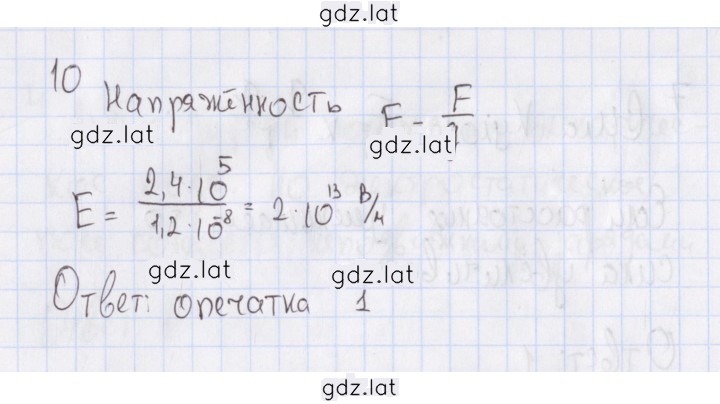 gdz.lat
10
Напряжённость F - F
gdz.lat gdz.lat
E = 2,4·10^5 / 1,2·10^-8 = 2·10^13 В/м
gdz.lat gdz.lat
Ответ: опечатка 1
gdz.lat